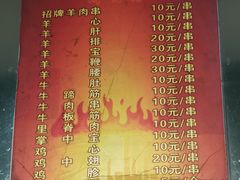 招牌羊肉串 10元/串
羊心 10元/串
羊肝 10元/串
羊排 20元/串
羊宝 20元/串
羊鞭 30元/串
羊腰 20元/串
羊肚 10元/串
牛蹄筋 10元/串
牛肉串 10元/串
牛板筋 10元/串
里脊肉 10元/串
掌中宝 10元/串
鸡心 10元/串
鸡翅 20元/串
鸡 10元/串